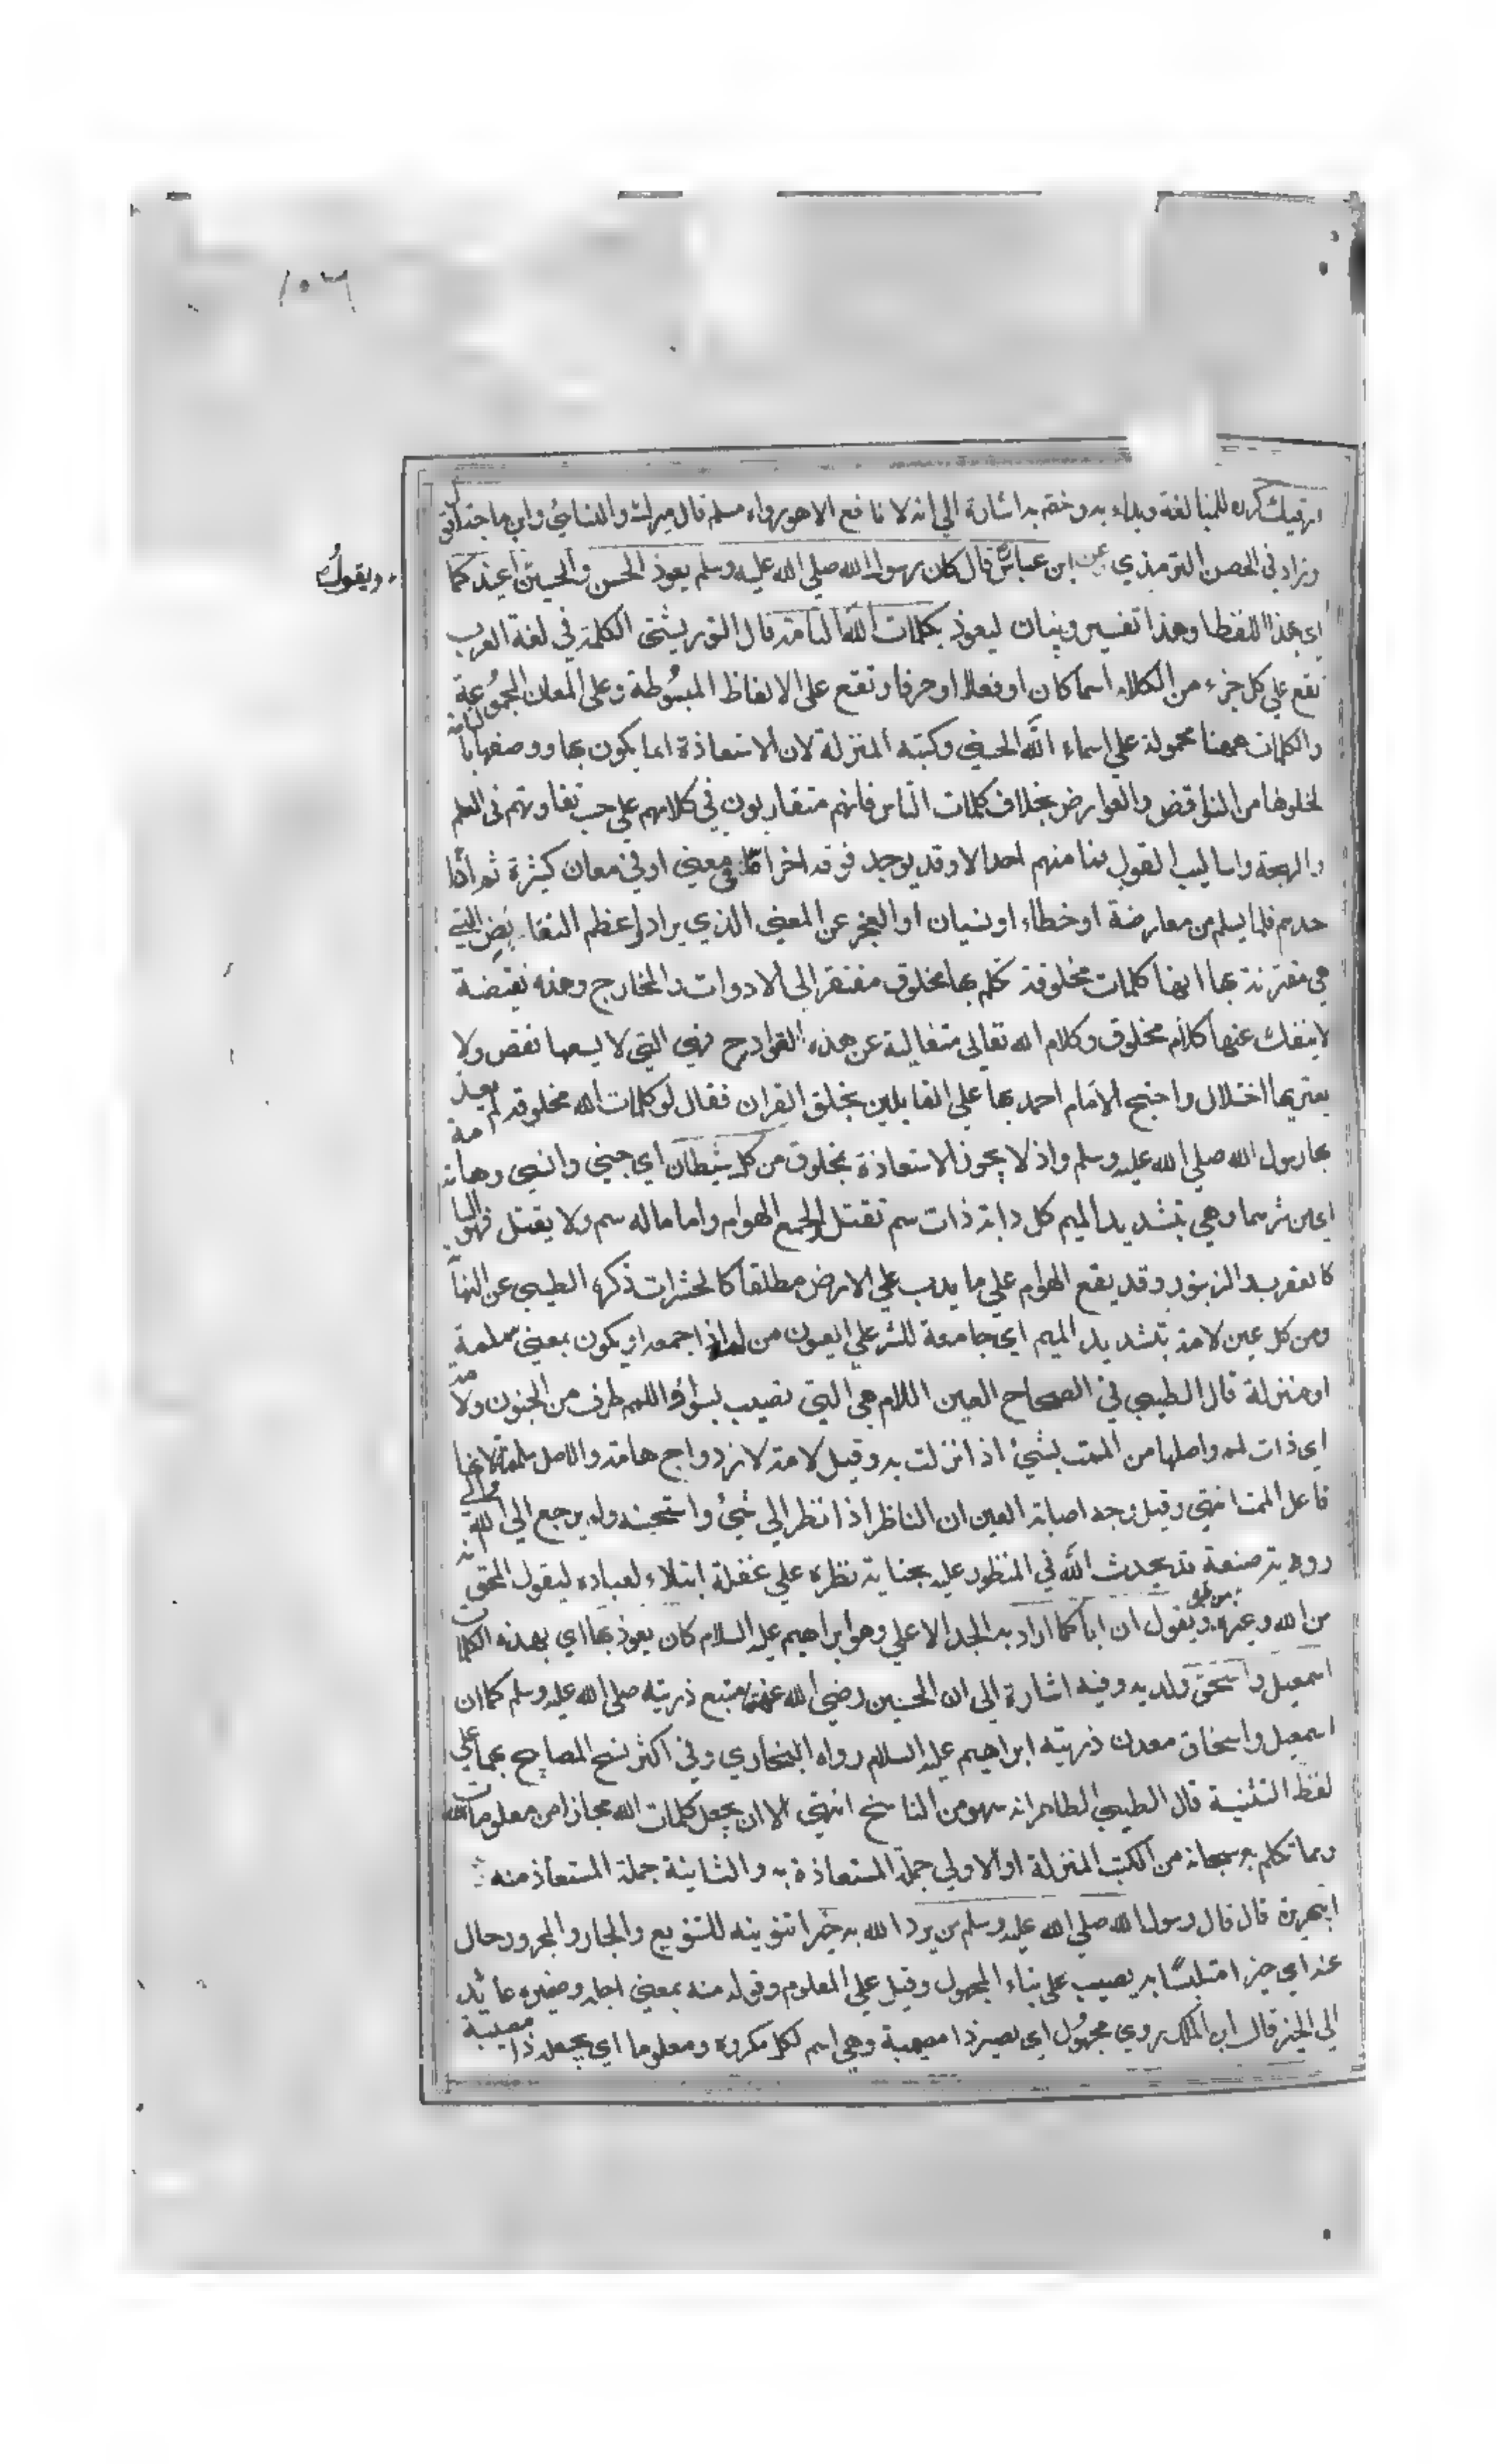 ١٠٦
ارقيك كرره للمبالغة وبداء به وختم به اشارة الي انه لا نافع الا هو رواه مسلم قال ميرك والنسائي وابن ماجة انتهى
وزاد في الحصن الترمذي عن ابن عباس قال كان رسول الله صلي الله عليه وسلم يعوذ الحسن والحسين اعيذكما
ويقول
اي بهذا اللفظ وهذا تفسير وبيان ليعوذ بكلمات الله التامة قال التوربشتى الكلمة في لغة العرب
تقع علي كل جزء من الكلام اسما كان او فعلا او حرفا وتقع على الالفاظ المبسوطة وعلى المعان المجموعة
والكلمات ههنا محمولة علي اسماء الله الحسني وكتبه المنزلة لان الاستعاذة انما يكون بها ووصفها بالتامة
لخلوها من النواقض والعوارض بخلاف كلمات الناس فانهم متفاوتون في كلامهم علي حسب تفاوتهم في العلم
والهجة واساليب القول فما منهم احد الا وقد يوجد فوقه اخر اما في معني او في معان كثيرة ثم ان ا
حدهم قلما يسلم من معارضة او خطاء او نسيان او العجز عن المعني الذي يراد واعظم النقايض التي
هي مقترنة بها انها كلمات مخلوقة تكلم بها مخلوق مفتقر الي الادوات والمخارج وهذه نقيضة
لا ينفك عنها كلام مخلوق وكلام الله تعالى متعالية عن هذه القوادح فهي التي لا يسعها نقص ولا
يعتريها اختلال واحتج الامام احمد بها علي القايلين بخلق القران فقال لو كلمات الله مخلوقة لم يعذ
بها رسول الله صلي الله عليه وسلم واذ لا يجوز الاستعاذة بمخلوق من كل شيطان اي جني وانسي وهامة
اي من شرهما وهي بتشديد الميم كل دابة ذات سم تقتل والجمع الهوام واما ماله سم ولا يقتل فهو السامة
كالعقرب والزنبور وقد يقع الهوام علي ما يدب علي الارض مطلقا كالحشرات ذكره الطيبي عن النهاية
ومن كل عين لامة بتشديد الميم اي جامعة للشر علي المعيون من لمه اذا جمعه او يكون بمعني ملمة
او منزلة قال الطيبي في الصحاح العين اللامة هي التي تصيب بسوء واللمم طرف من الجنون ولامة
اي ذات لمم واصلها من الممت بشيء اذا نزلت به وقيل لامة لازدواج هامة والاصل ملمة لانها
فاعل الممت انتهي وقيل وجه اصابة العين ان الناظر اذا نظر الي شيء واستحسنه ولم يرجع الي الله والي
روية صنعة قد يحدث الله في المنظور عليه بجناية نظره علي غفلة ابتلاء لعباده ليقول المحق انه
من الله وغيره من غيره ويقول ان اباكما اراد به الجد الاعلي وهو ابراهيم عليه السلام كان يعوذ بها اي بهذه الكلمات
اسمعيل واسحق ولديه وفيه اشارة الى ان الحسنين رضي الله عنهما منبع ذريته صلى الله عليه وسلم كما ان
اسمعيل واسحاق معدن ذريته ابراهيم عليه السلام رواه البخاري وفي اكثر نسخ المصابيح بهما علي
لفظ التثنية قال الطيبي الظاهر انه سهو من الناسخ انتهي الا ان يجعل كلمات الله مجازا من معلومات الله
وبما تكلم به سبحانه من الكتب المنزلة او الاولي جملة المستعاذة به والثانية جملة المستعاذ منه
ابي هريرة قال قال رسول الله صلي الله عليه وسلم من يرد الله به خيرا تنوينه للتنويع والجار والمجرور حال
عنه اي خيرا متلبسا به يصيب على بناء المجهول وقيل علي المعلوم وقوله منه بمعني اجله وضميره عائد
الي الخير قال ابن الملك روي مجهول اي يصير ذا مصيبة وهي اسم لكل مكروه ومعلوما اي يجعله ذا مصيبة